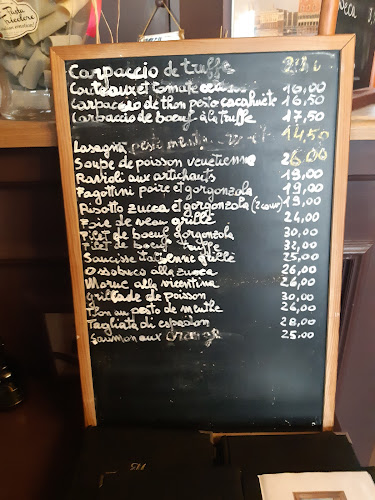 Carpaccio de truffe
Couteaux et tomate 16,00
Carpaccio de thon pesto cacahuète 16,50
Carbaccio de boeuf à la truffe 17,50
14,50
Lasagna
Soupe de poisson venetienne 26,00
Ravioli aux artichauts 19,00
Fagottini poire et gorgonzola 19,00
Risotto zucca et gorgonzola (2 19,00
Foie de veau grillé 24,00
Filet de boeuf gorgonzola 30,00
Filet de boeuf truffe 32,00
Saucisse italienne grillé 25,00
Ossobuco alla zucca 26,00
Moruc alla vicentina 26,00
Grillade de poisson 30,00
Thon au pesto de menthe 26,00
Tagliata di espadon 28,00
Saumon aux orange 25,00